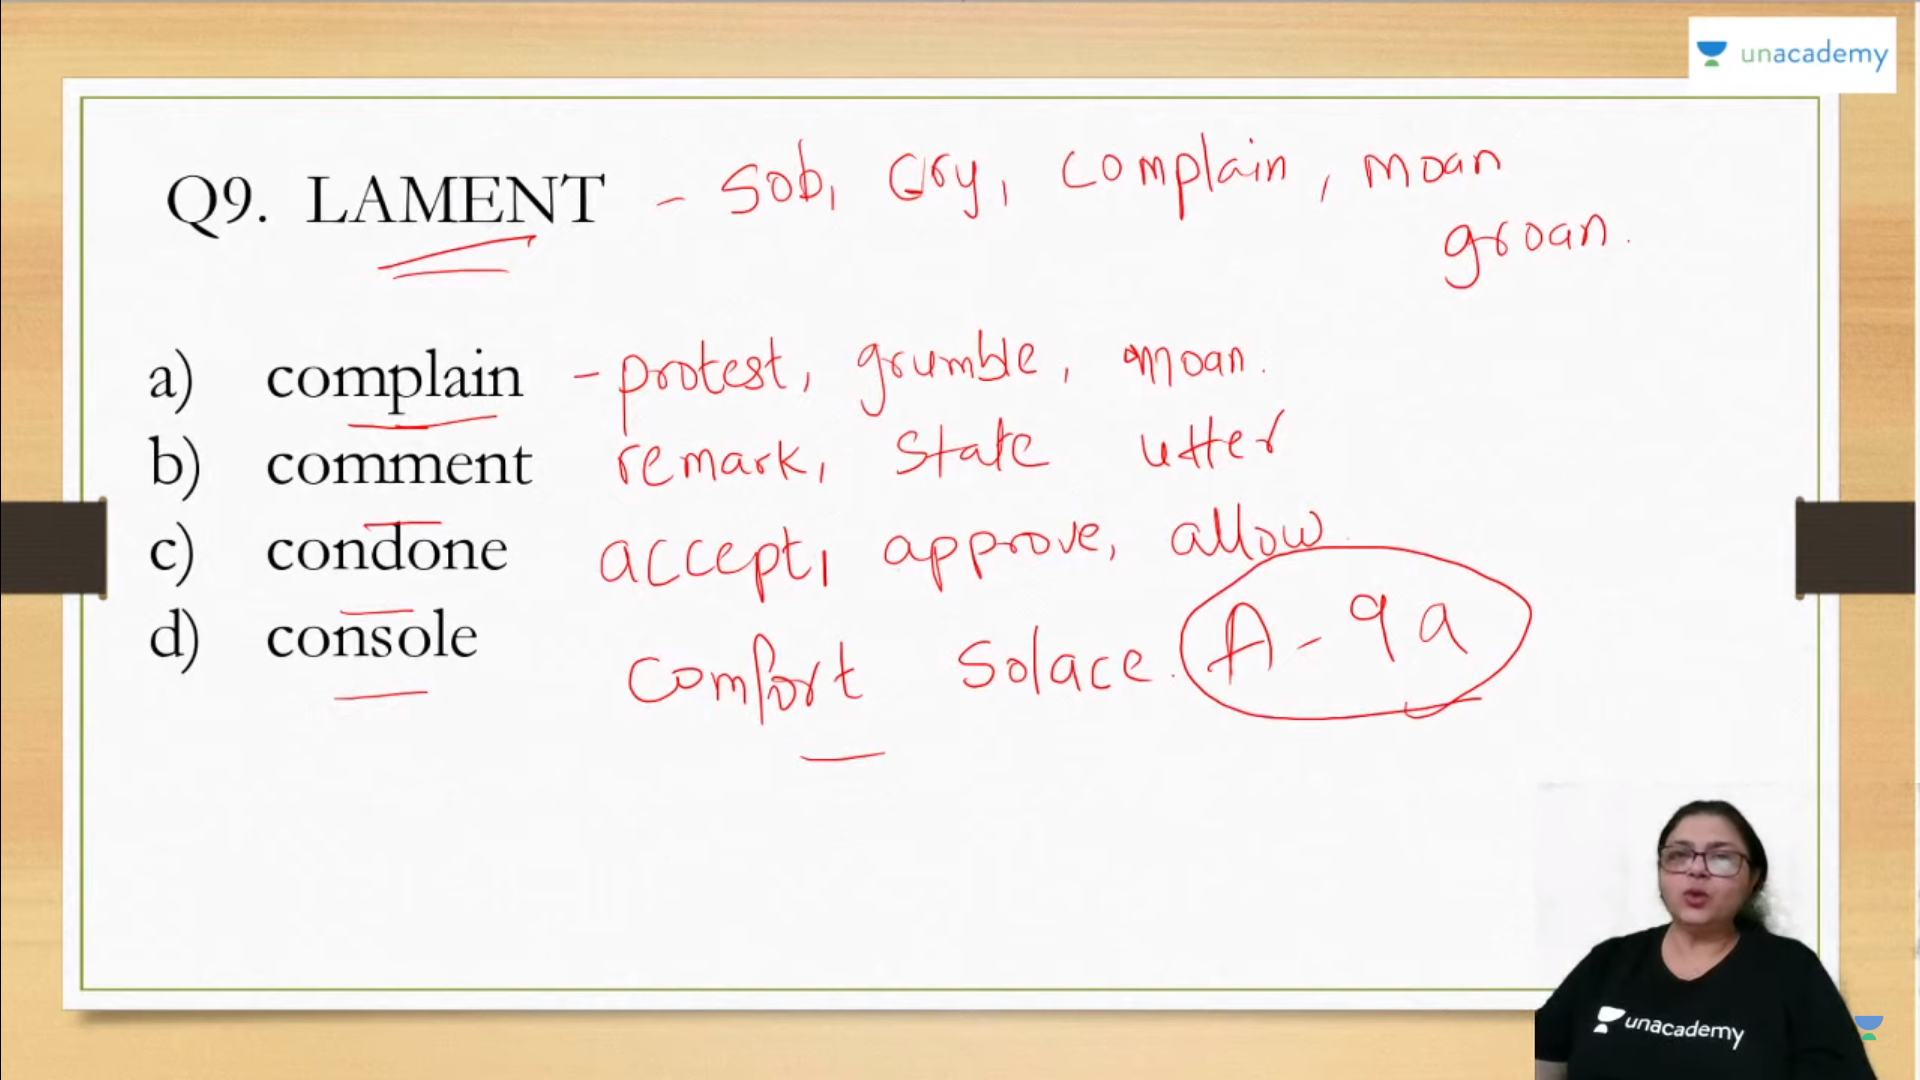 unacademy
Q9. LAMENT - Sob, Cry, Complain, moan
groan.
a) complain - protest, grumble, moan.
b) comment remark, State utter
c) condone accept, approve, allow
d) console Comfort Solace. A - 9a
unacademy